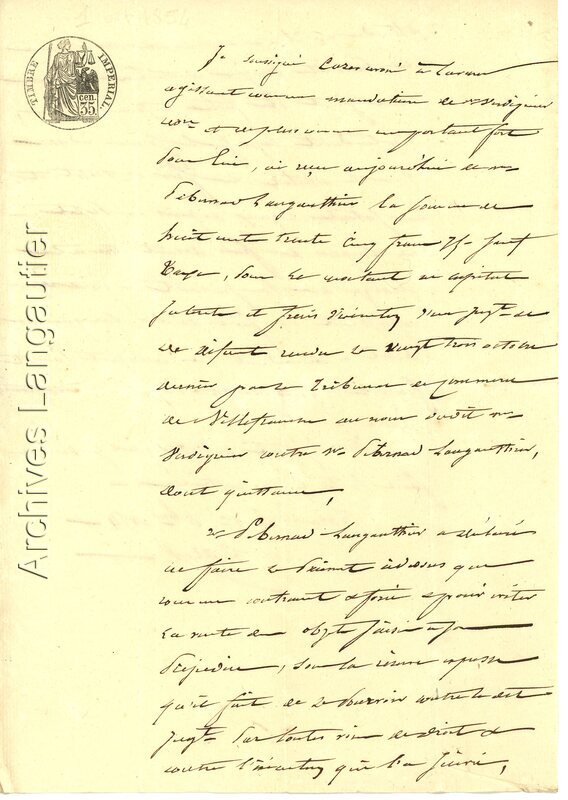 TIMBRE IMPERIAL
35 cen.
Archives Langautier
Je soussigné avoué à
agissant comme mandataire de Mr Verdeguier
et de plus comme me portant fort
pour lui, ai reçu aujourd'hui de Mr
Langauthier la somme de
huit cent trente cinq francs 75 sauf
pour le montant en capital
intérêts et frais d'un jugt de
de défaut rendu le vingt trois octobre
dernier par le Tribunal de Commerce
de Villefranche au nom dudit Mr
Verdeguier contre Mr Langauthier,
dont quittance,
Mr Langauthier a déclaré
ne faire le ci dessus que
comme contraint & forcé & pour éviter
la vente des objets saisis à son
préjudice, sous la réserve expresse
qu'il fait de se pourvoir contre le dit
jugt par toutes voies de droit &
contre l'exécution qui l'a suivi,